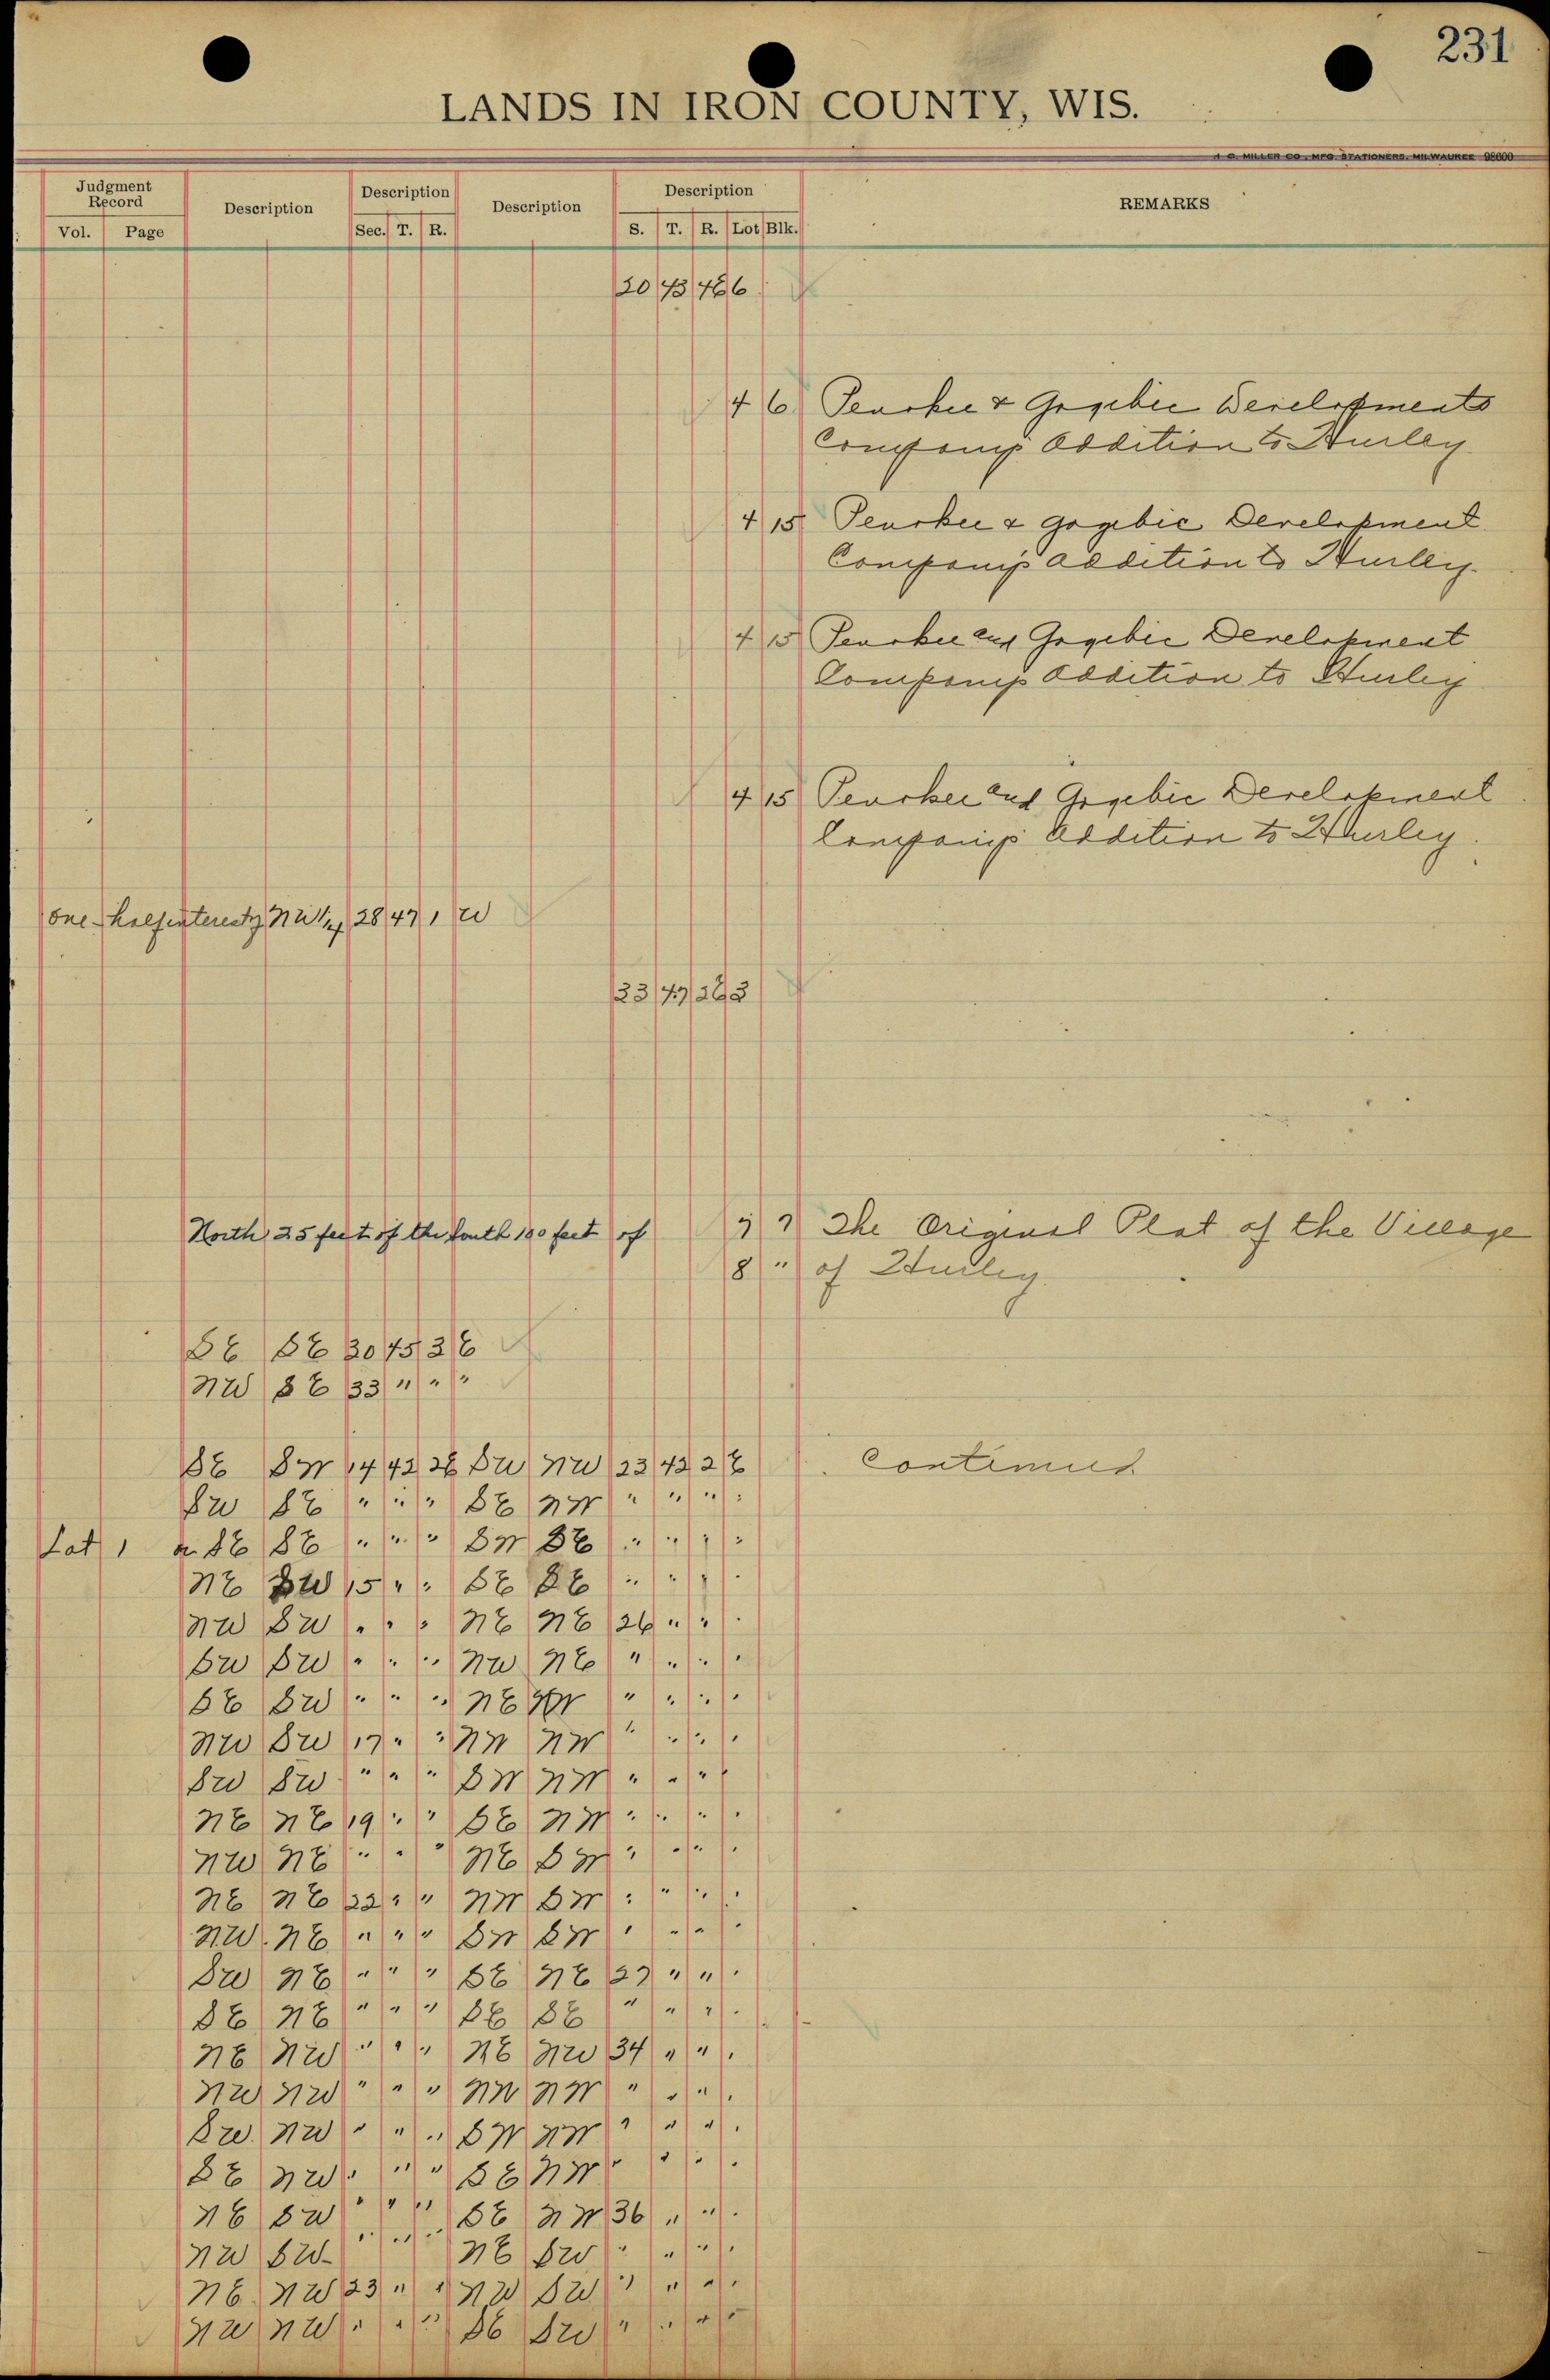 231
LANDS IN IRON COUNTY, WIS.
H. C. MILLER CO., MFG. STATIONERS, MILWAUKEE 98600
Judgment Record Description Description Description Description REMARKS
Vol. Page Sec. T. R. S. T. R. Lot Blk.
43
4 6 Penokee & Gogebic Developments
Company's Addition to Hurley
4 15 Penokee & Gogebic Development
Company's Addition to Hurley.
4 15 Penokee and Gogebic Development
Company's Addition to Hurley
4 15 Penokee and Gogebic Development
Company's Addition to Hurley.
One-half interest NW 1/4 28 47 1 W
33 47 2E 3
North 25 feet of the South 100 feet of 7 7 The Original Plat of the Village
8 " of Hurley.
SE SE 30 45 3 E
NW SE 33 " " "
SE SW 14 42 2E SW NW 23 42 2 E Continued
SW SE " " " SE NW " " " "
Lot 1 SE SE " " " SW SE " " " "
NE SW 15 " " SE SE " " " "
NW SW " " " NE NE 26 " " "
SW SW " " " NW NE " " " "
SE SW " " " NE NW " " " "
NW SW 17 " " NW NW " " " "
SW SW " " " SW NW " " " "
NE NE 19 " " SE NW " " " "
NW NE " " " NE SW " " " "
NE NE 22 " " NW SW " " " "
NW NE " " " SW SW " " " "
SW NE " " " SE NE 27 " " "
SE NE " " " SE SE " " " "
NE NW " " " NE NW 34 " " "
NW NW " " " NW NW " " " "
SW NW " " " SW NW " " " "
SE NW " " " SE NW " " " "
NE SW " " " SE NW 36 " " "
NW SW " " " NE SW " " " "
NE NW 23 " " NW SW " " " "
NW NW " " " SE SW " " " "